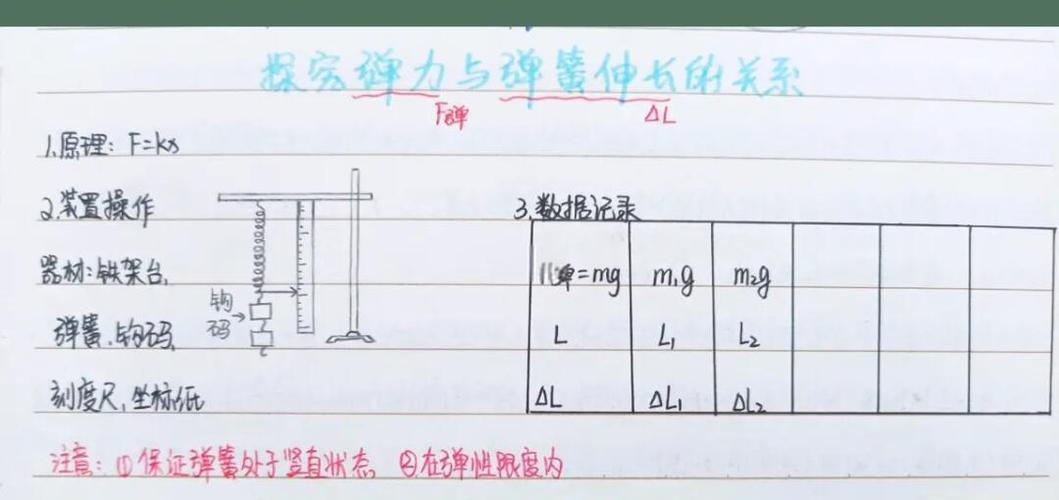 探究弹力与弹簧伸长的关系
F弹 ΔL
1.原理: F=kx
2.装置操作
器材:铁架台,
弹簧,钩码,
刻度尺,坐标纸
钩
码
3.数据记录
F弹=mg m₁g m₂g
L L₁ L₂
ΔL ΔL₁ ΔL₂
注意: ①保证弹簧处于竖直状态 ②在弹性限度内